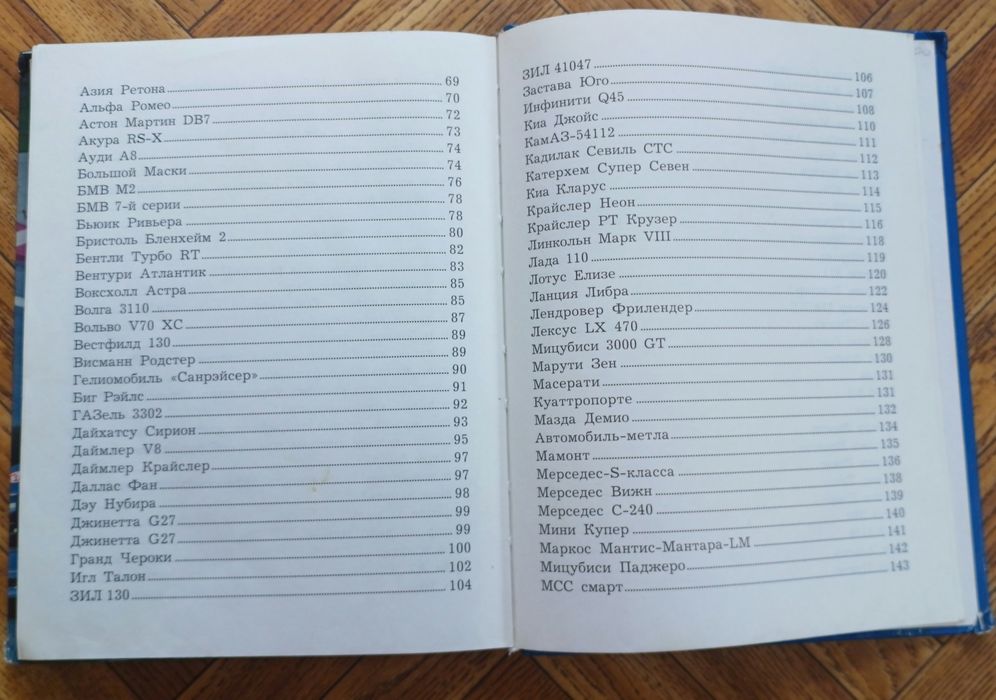 Азия Ретона 69
Альфа Ромео 70
Астон Мартин DB7 72
Акура RS-X 73
Ауди А8 74
Большой Маски 74
БМВ М2 76
БМВ 7-й серии 78
Бьюик Ривьера 78
Бристоль Бленхейм 2 80
Бентли Турбо RT 82
Вентури Атлантик 83
Воксхолл Астра 85
Волга 3110 85
Вольво V70 XC 87
Вестфилд 130 89
Висманн Родстер 89
Гелиомобиль «Санрэйсер» 90
Биг Рэйлс 91
ГАЗель 3302 92
Дайхатсу Сирион 93
Даймлер V8 95
Даймлер Крайслер 97
Даллас Фан 97
Дэу Нубира 98
Джинетта G27 99
Джинетта G27 99
Гранд Чероки 100
Игл Талон 102
ЗИЛ 130 104
ЗИЛ 41047 106
Застава Юго 107
Инфинити Q45 108
Киа Джойс 110
КамАЗ-54112 111
Кадилак Севиль СТС 112
Катерхем Супер Севен 113
Киа Кларус 114
Крайслер Неон 115
Крайслер РТ Крузер 116
Линкольн Марк VIII 118
Лада 110 119
Лотус Елизе 120
Ланция Либра 122
Лендровер Фрилендер 124
Лексус LX 470 126
Мицубиси 3000 GT 128
Марути Зен 130
Масерати 131
Куаттропорте 131
Мазда Демио 132
Автомобиль-метла 134
Мамонт 135
Мерседес-S-класса 136
Мерседес Вижн 138
Мерседес С-240 139
Мини Купер 140
Маркос Мантис-Мантара-LM 141
Мицубиси Паджеро 142
МСС смарт 143